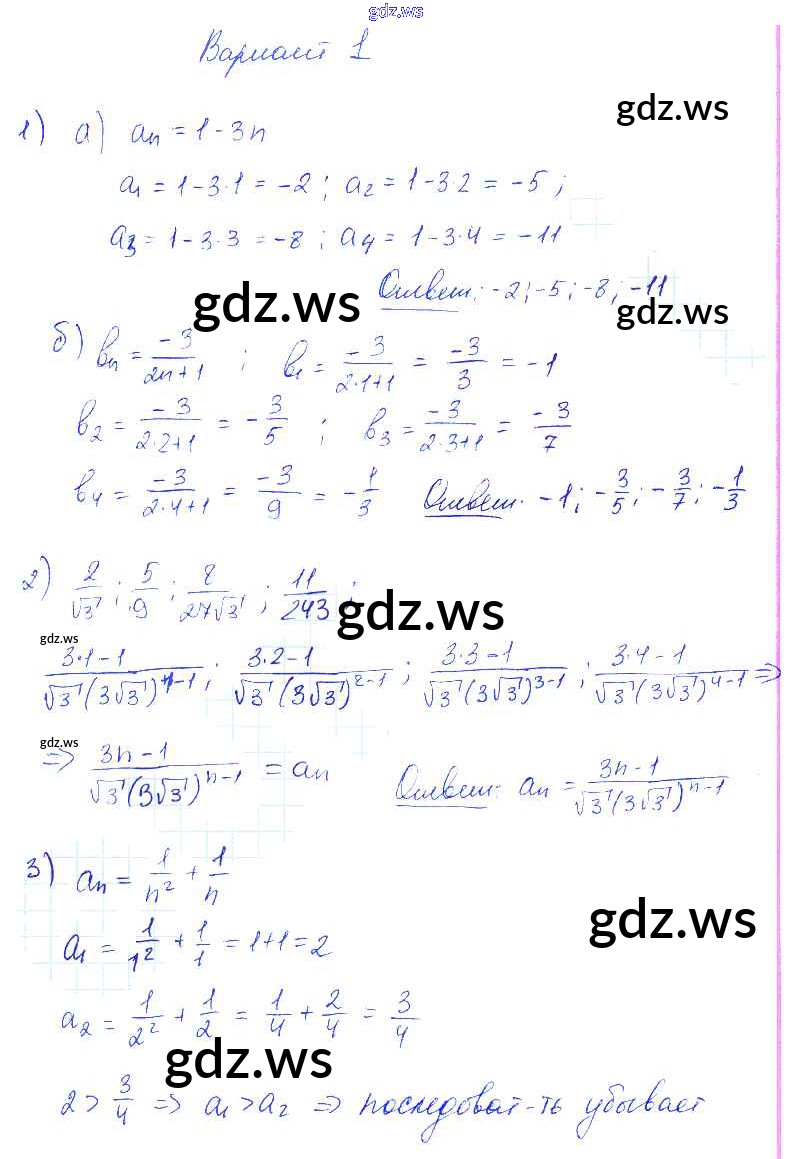 gdz.ws
Вариант 1
gdz.ws
1) а) aₙ = 1 - 3n
a₁ = 1 - 3·1 = -2 ; a₂ = 1 - 3·2 = -5 ;
a₃ = 1 - 3·3 = -8 ; a₄ = 1 - 3·4 = -11
Ответ: -2 ; -5 ; -8 ; -11
gdz.ws
gdz.ws
б) вₙ = -3/(2n+1) ; в₁ = -3/(2·1+1) = -3/3 = -1
в₂ = -3/(2·2+1) = -3/5 ; в₃ = -3/(2·3+1) = -3/7
в₄ = -3/(2·4+1) = -3/9 = -1/3 Ответ: -1 ; -3/5 ; -3/7 ; -1/3
2) 2/√3 ; 5/9 ; 8/(27√3) ; 11/243 ;
gdz.ws
gdz.ws
(3·1-1)/(√3(3√3)¹⁻¹) ; (3·2-1)/(√3(3√3)²⁻¹) ; (3·3-1)/(√3(3√3)³⁻¹) ; (3·4-1)/(√3(3√3)⁴⁻¹) ⇒
gdz.ws
⇒ (3n-1)/(√3(3√3)ⁿ⁻¹) = aₙ Ответ: aₙ = (3n-1)/(√3(3√3)ⁿ⁻¹)
3) aₙ = 1/n² + 1/n
gdz.ws
a₁ = 1/1² + 1/1 = 1+1 = 2
a₂ = 1/2² + 1/2 = 1/4 + 2/4 = 3/4
gdz.ws
2 > 3/4 ⇒ a₁ > a₂ ⇒ последоват-ть убывает